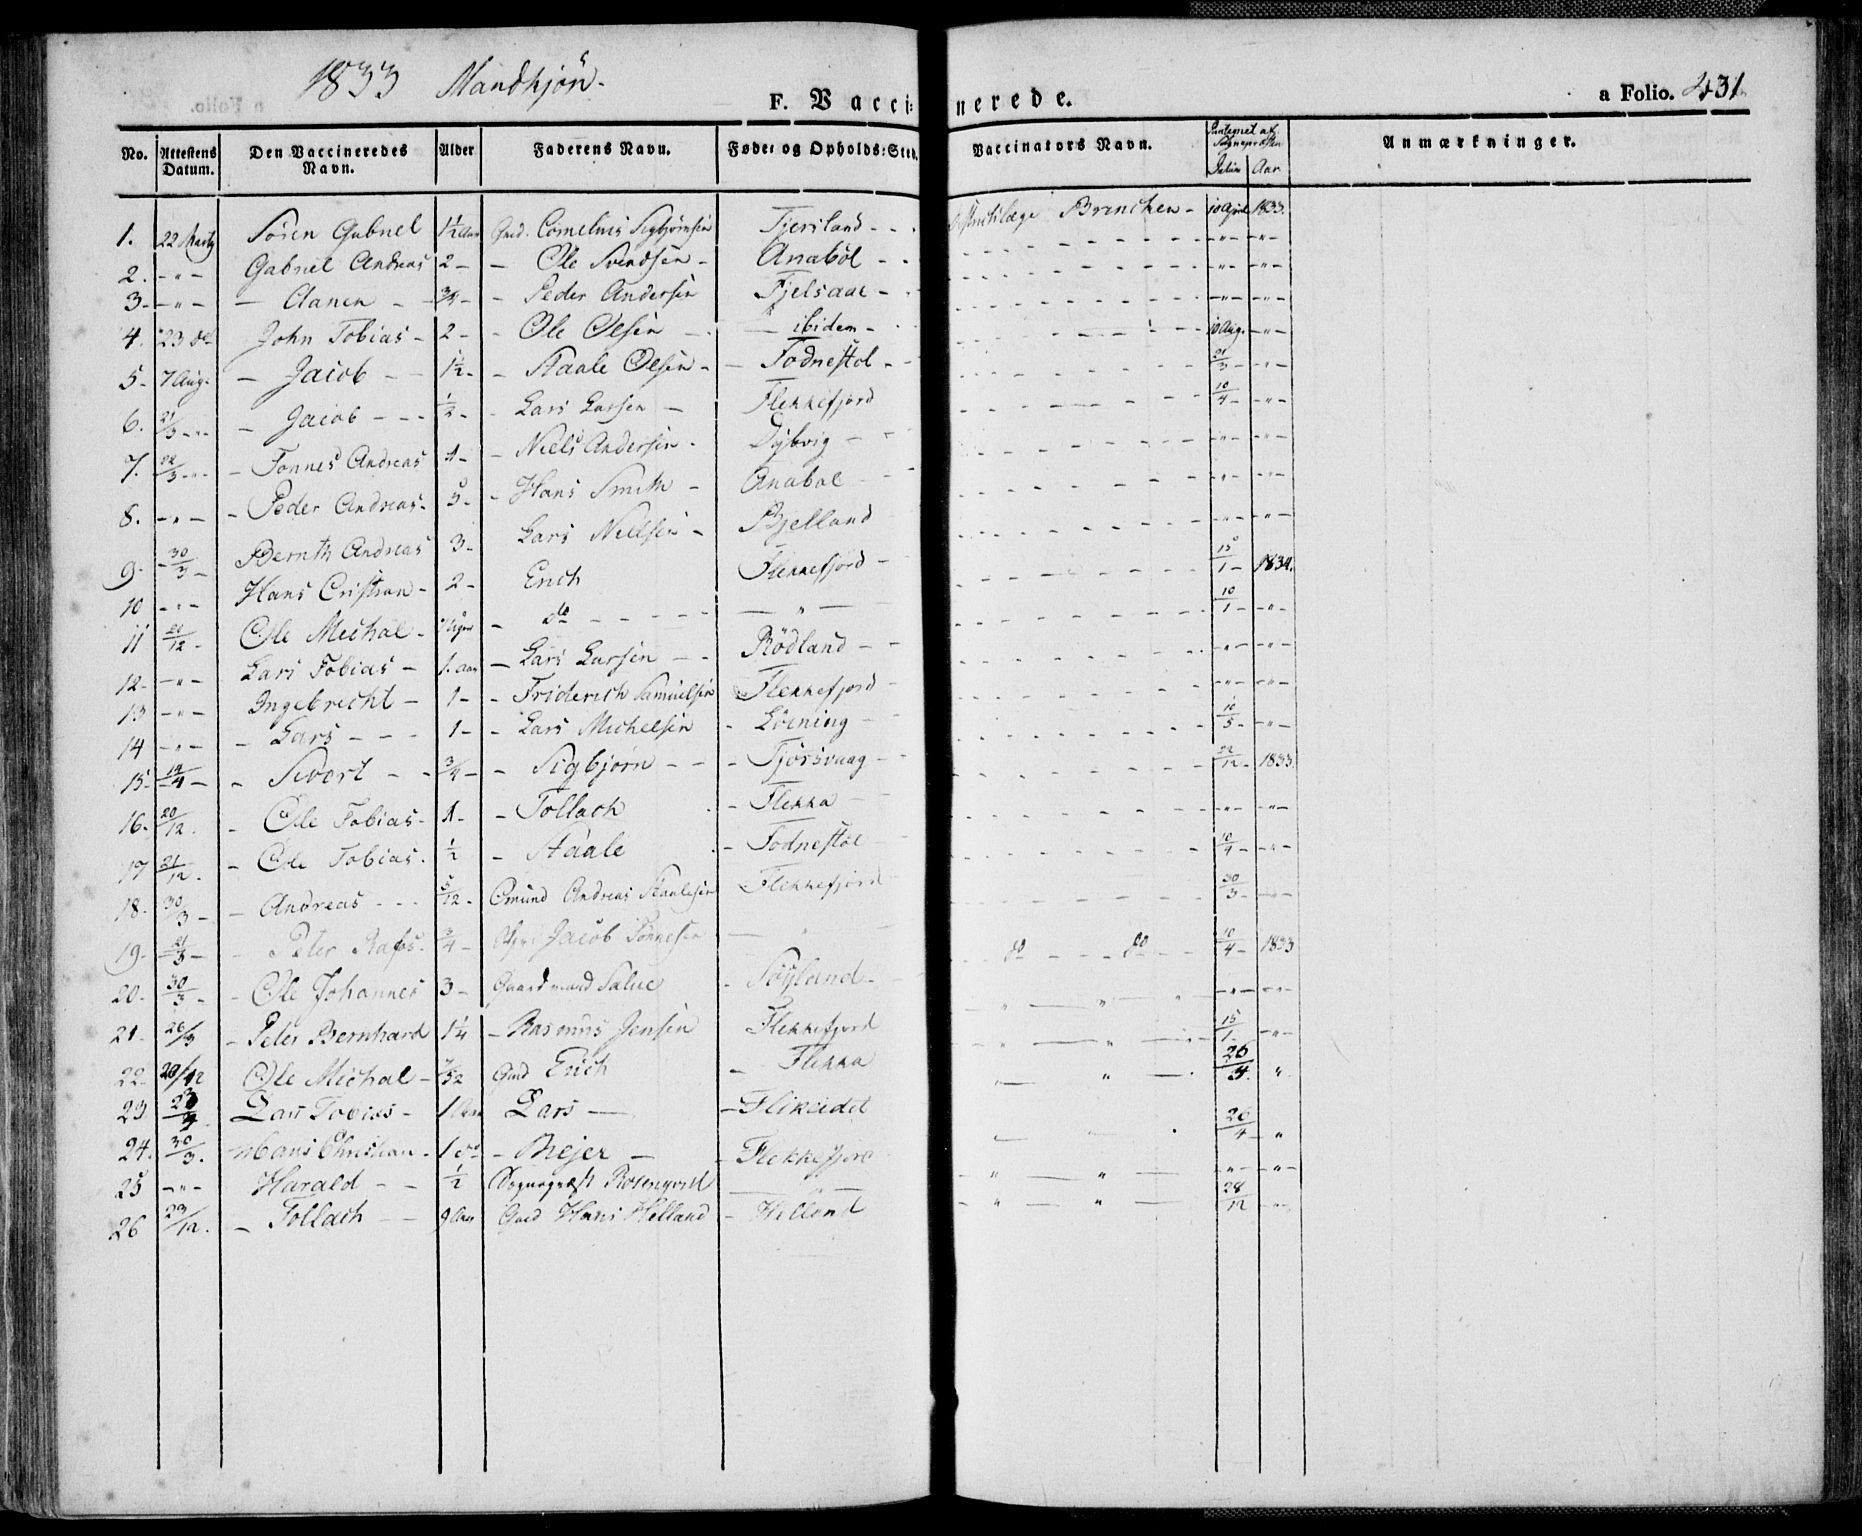 1833 Mandkjön.
F. Vacci: nerede. a Folio. 431.
No. Attestens Datum. Den Vaccineredes Navn. Alder Faderens Navn. Føde: og Opholds:Sted. Vaccinators Navn. Datum Aar Anmærkninger.
1. 22 Marts Sören Gabriel 1½ Aar Gmd. Cornelius Sigbjörnsen Fjersland - - . Brincker - 10 April 1833.
2. - " - Gabriel Andreas 2 - - Ole Svendsen - Anaböl - - - " - - " -
3 - - " - - Aanen - - ¾ - - Peder Andersen Fjelsaae - - " - - " -
4. 23 do John Tobias - 2 - - Ole Olsen - - ibidem - - " - - " -
5 - 7 Aug. - Jacob - - 1½ - - Staale Olsen - - Fodnestöl - 10 Aug. - " -
6. 21/3 - " - - Jacob - - - ½ - - Lars Larsen - Flekkefjord 21/3 - - " -
7. 22/3 - " - - Tönnes Andreas 4 - - Niels Andersen - Dybvig - - 10/4 - - " -
8. - " - - Peder Andreas - 5 - - Hans Smith - Anabal - - - " - - " -
9 - 30/3 - Bernth Andreas 3 - Lars Nielsen - Bjelland - " - - " -
10 - " - Hans Cristian - 2 - Erich Flekkefjord - - " - - " -
11 21/12 - Ole Michal - - do - - - - - " - 15/1 - 1834.
12 - - " - Lars Tobias - 1. Aar - Lars Larsen - - Rödland - - 10/1 - - " -
13 - " - Ingebrecht - 1 - - Friderich Samuelsen Flekkefjord - - " - - " -
14 - " - - Lars - - - 1 - - Lars Michelsen - Löening - - - " - - " -
15 - 14/4 - - Sivert - - ¾ - - Sigbjörn - - - Tjörsvaag - - 10/5 - - " -
16 - 20/12. - Ole Tobias - 1 - - Tollach - Flekka - 22/12 - 1833.
17 21/12. - Ole Tobias. ½ - Staale - Fodnestöl - - " - - " -
18 - 30/3 - - Andreas - - - 5/12 - Omund Andreas Staalesen Flekkefjord 10/4 - - " -
19 - 21/3 - - Peter - ¾ - Jacob Tönnesen - " - 30/3 - - " -
20 - 30/3 - - Ole Johannes 3 - Gaardmand Salve - Söyland - do - - - do - - 10/4 - 1833
21 - 26/3 - Peter Bernhard 1¼ - Rasmus Jensen Flekkefjord " - " - " - - " - - " -
22 - 20/12 Ole Michal - 7/52 Gmd Erich - Flekka " - " - 15/1 - - " -
23 23/4 Lars Tobias - 1 Aar Lars - - Flikeidet - " - 26/4. "
24. 30/3. Hans Christian - 1 do - Biejer - - Flekkefjord 26/4 - "
25 - " - Harald - - ½ Sogneprest Rosenqvist - " - " - " - - " - - " -
26 29/12. - Tollach - 9 Aar Gmd Hans Helland - Helland " - " - 28/12 - " -